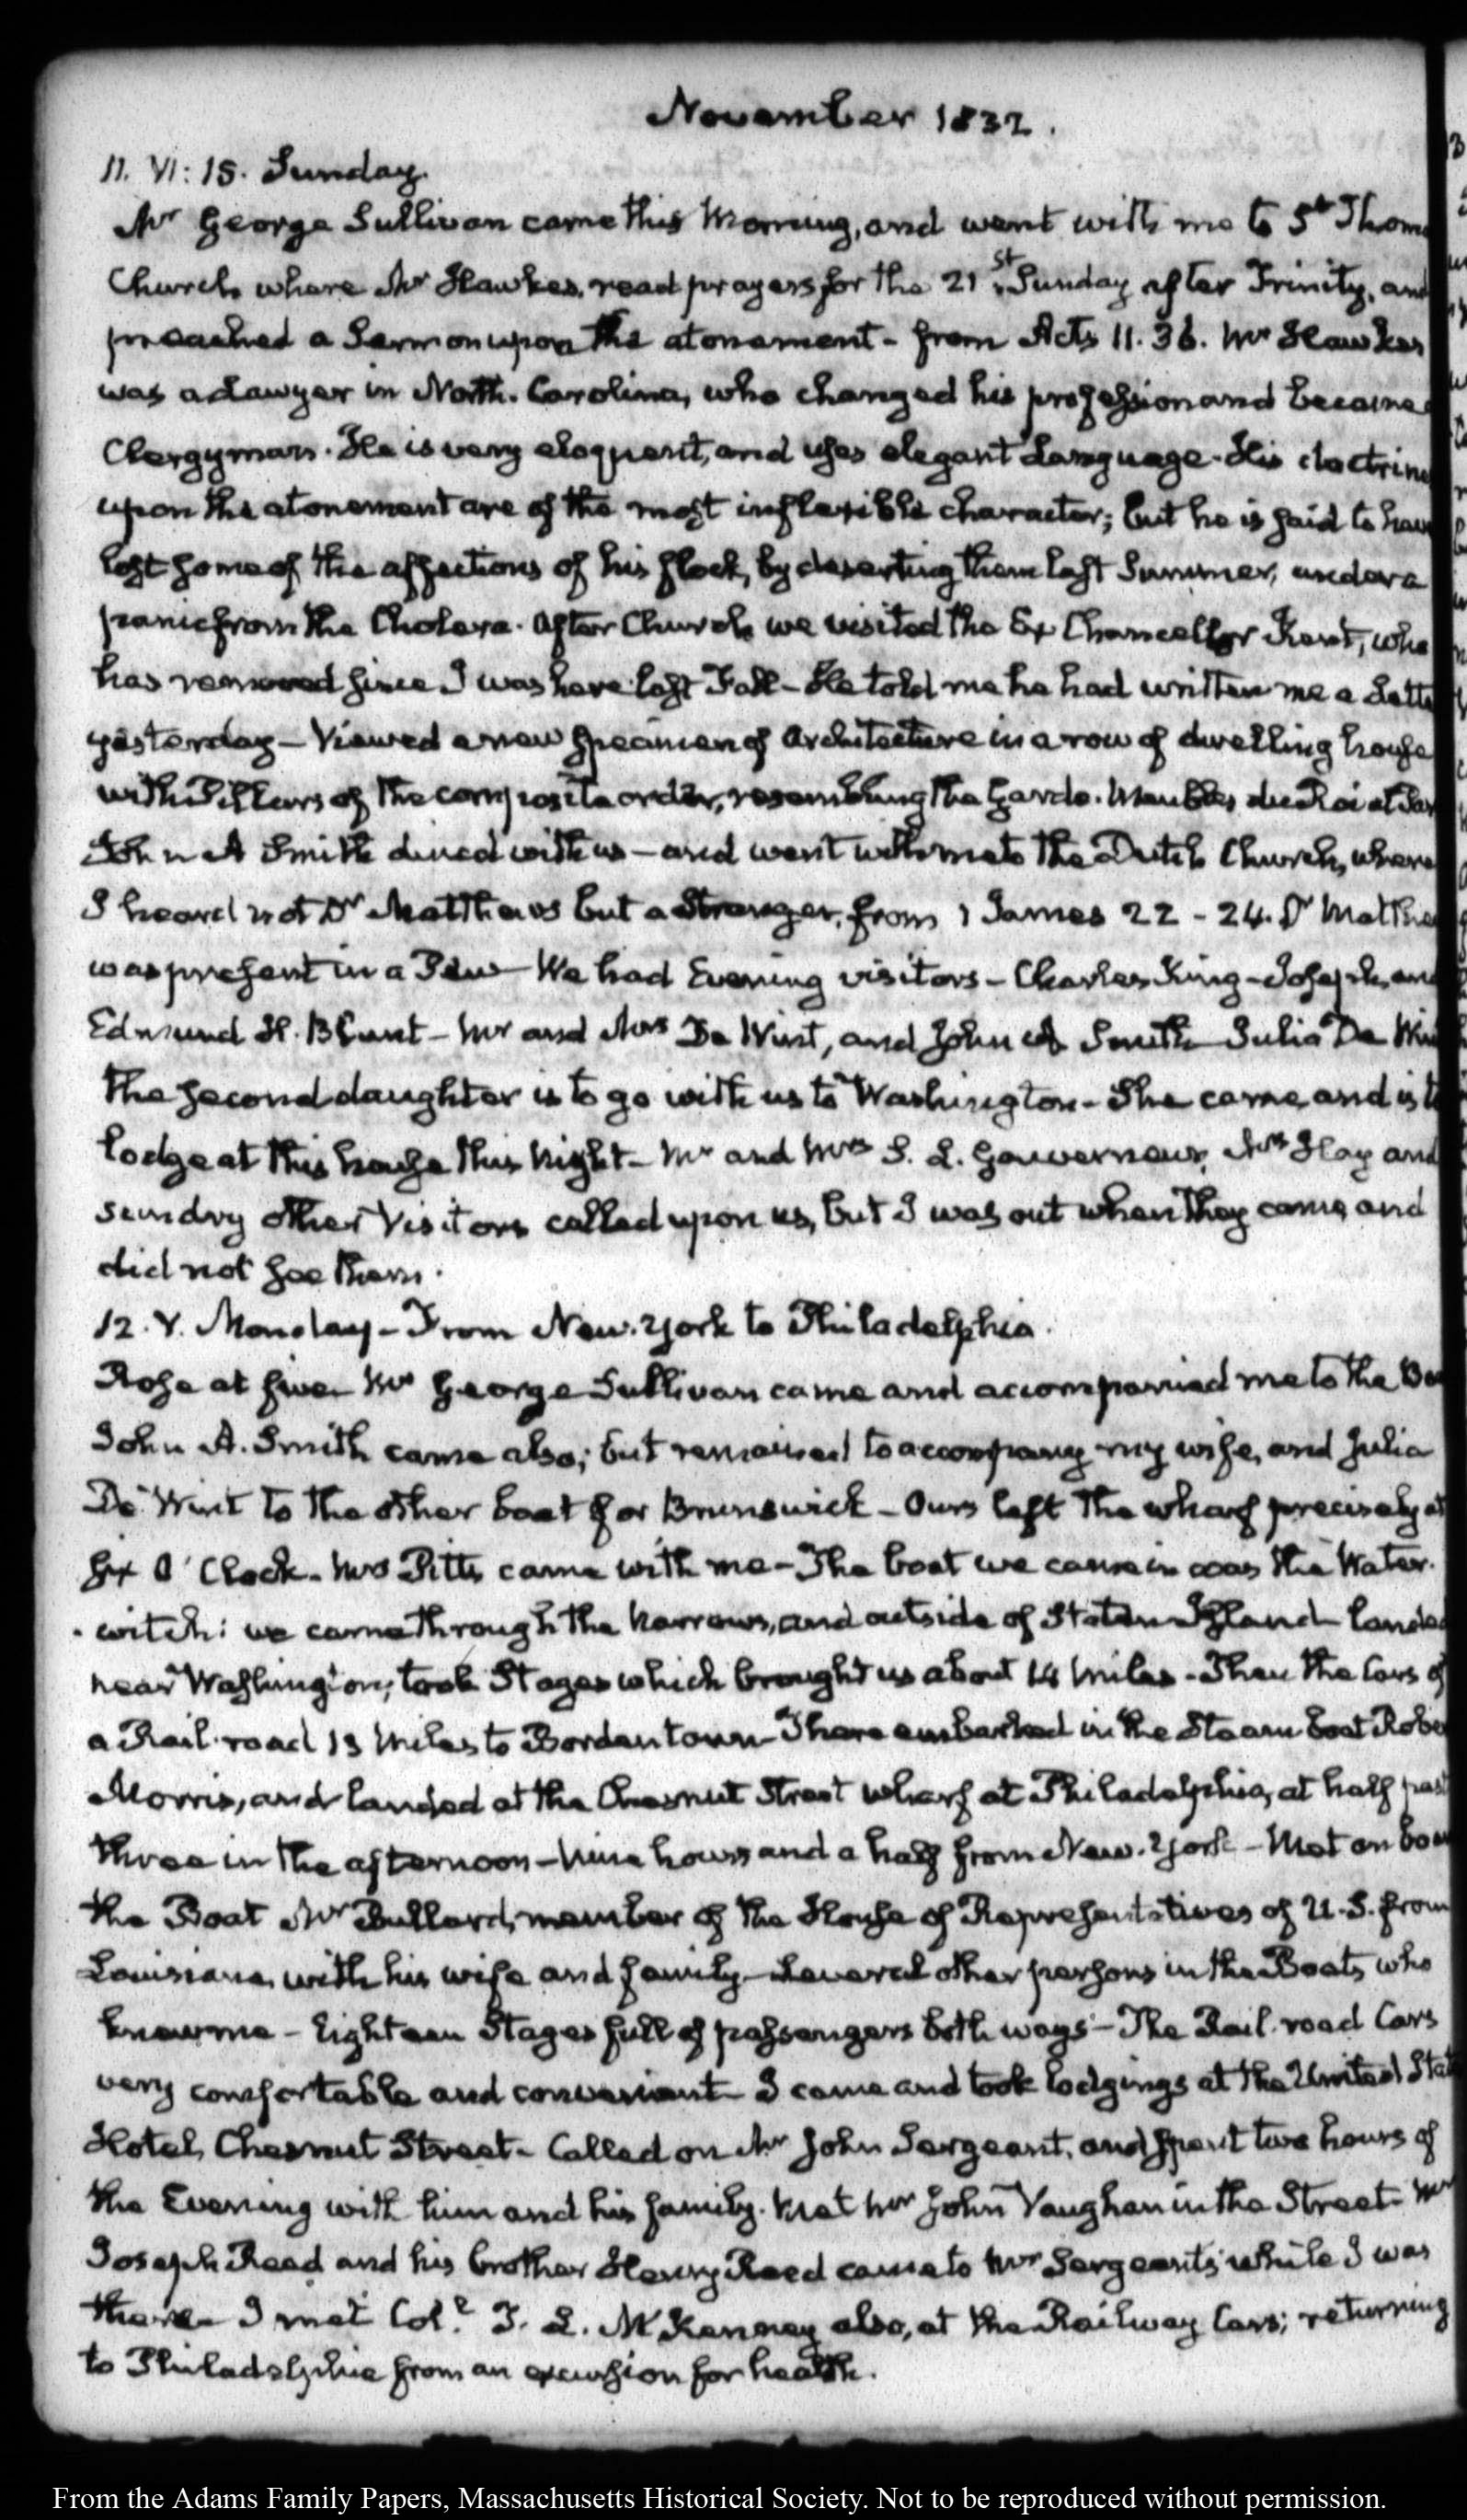 November 1832.
11. VI: 15. Sunday.
Mr George Sullivan came this Morning, and went with me to St Thom
Church where Mr Hawkes, read prayers for the 21st Sunday after Trinity, and
preached a Sermon upon the atonement - from Acts 11. 36. Mr Hawkes
was a Lawyer in North-Carolina, who changed his profession and became
Clergyman. He is very eloquent, and uses elegant Language. His doctrine
upon the atonement are of the most inflexible character; but he is said to have
lost some of the affections of his flock, by deserting them last Summer, under a
panic from the Cholera. After Church we visited the Ex Chancellor Kent, who
has removed since I was here last Fall - He told me he had written me a Lette
yesterday - Viewed a new specimen of Architecture in a row of dwelling house
with Pillars of the composite order, resembling the Garde-Meubles du Roi at Par
John A Smith dined with us - and went with me to the Dutch Church, where
I heard not Dr Matthews but a Stranger, from 1 James 22 - 24. Dr Matthe
was present in a Pew - We had Evening visitors - Charles King - Joseph, and
Edmund H. Blunt - Mr and Mrs De Wint, and John A Smith - Julia De Win
the second daughter is to go with us to Washington - She came, and is t
lodge at this house this Night - Mr and Mrs S. L. Gouverneur, Mrs Hay and
sundry other Visitors called upon us, but I was out when they came, and
did not see them.
12. V. Monday - From New-York to Philadelphia.
Rose at five. Mr George Sullivan came and accompanied me to the Boa
John A. Smith came also; but remained to accompany my wife, and Julia
De Wint to the other boat for Brunswick - Ours left the wharf precisely at
six O'Clock - Mrs Pitts came with me - The boat we came in was the Water-
-witch: we came through the Narrows, and outside of Staten Island - landed
near Washington; took Stages which brought us about 14 miles - Then the Cars of
a Rail-road 13 Miles to Bordentown - There embarked in the Steam boat Robe
Morris, and landed at the Chesnut Street wharf at Philadelphia, at half past
three in the afternoon - Nine hours and a half from New-York - Met on boar
the Boat Mr Bullard, member of the House of Representatives of U.S. from
Louisiana, with his wife and family - Several other persons in the Boats, who
knew me - Eighteen Stages full of passengers both ways - The Rail-road Cars
very comfortable and convenient - I came and took lodgings at the United Stat
Hotel, Chesnut Street - Called on Mr John Sergeant, and spent two hours of
the Evening with him and his family. Met Mr John Vaughan in the Street - Mr
Joseph Reed and his brother Henry Reed came to Mr Sergeant's while I was
there - I met Col.l T. L. McKenney also, at the Railway Cars; returning
to Philadelphia from an excursion for health.
From the Adams Family Papers, Massachusetts Historical Society. Not to be reproduced without permission.